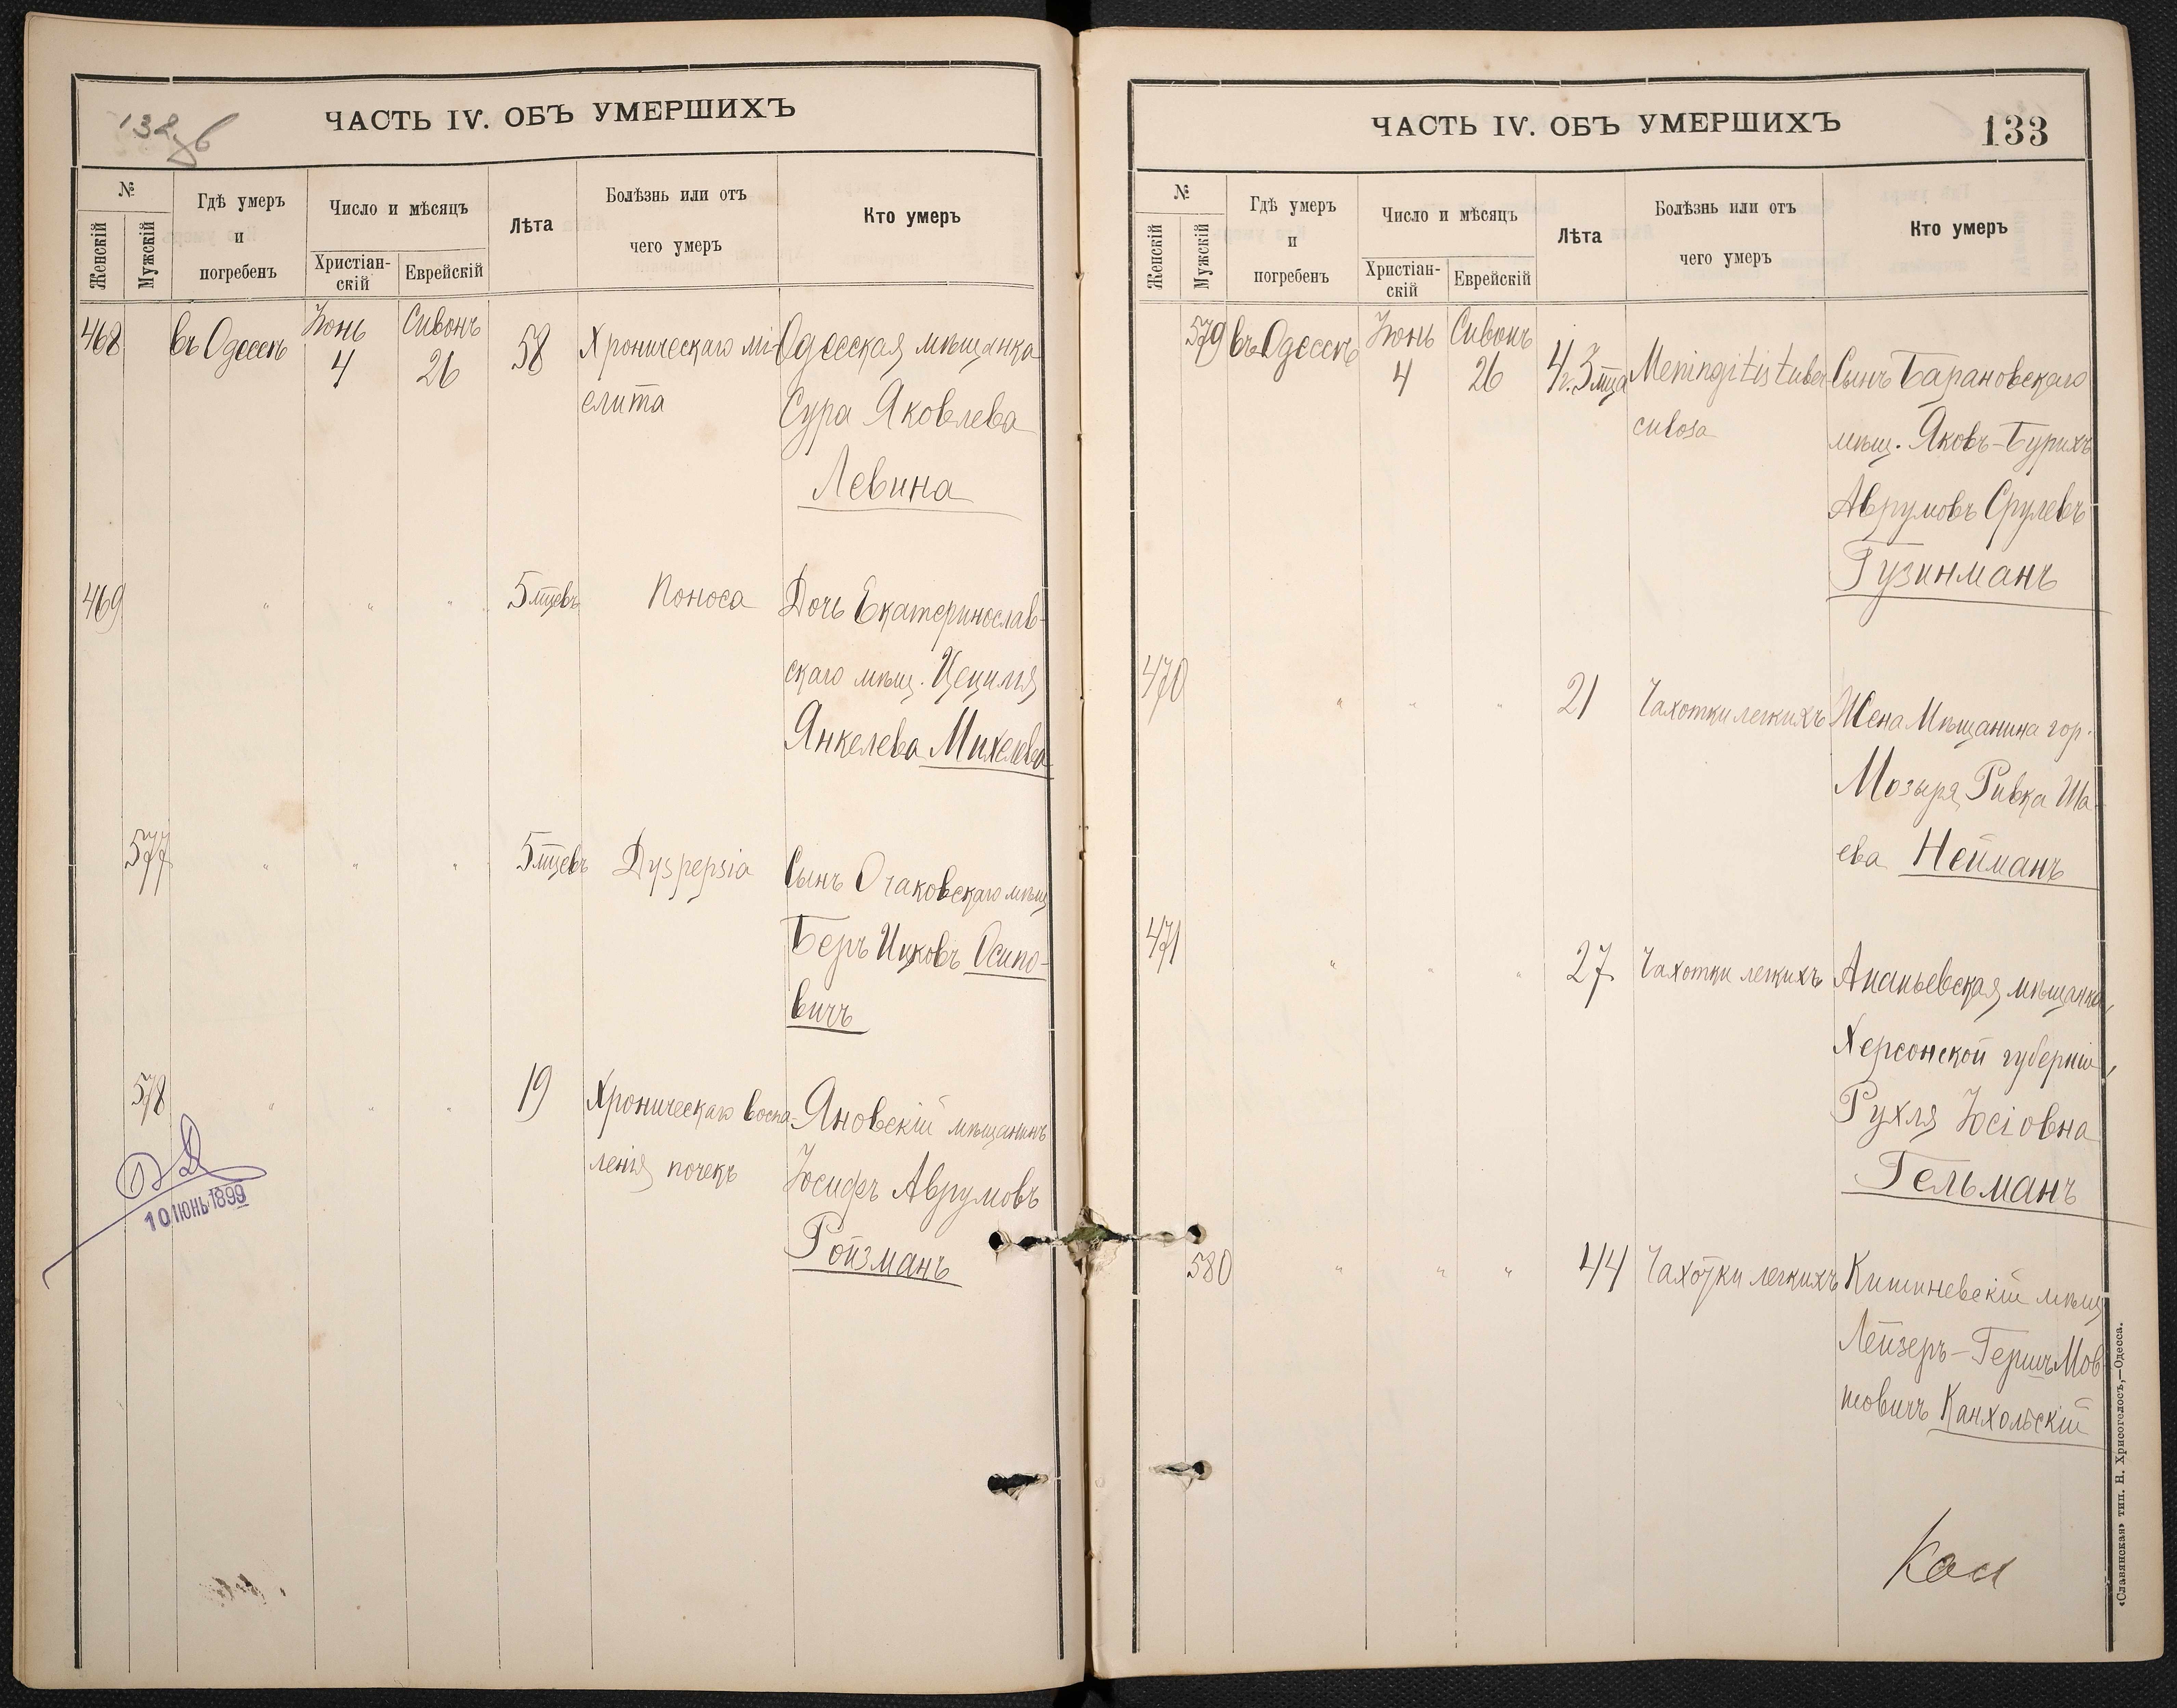 132 об
ЧАСТЬ IV. ОБЪ УМЕРШИХЪ
№
Женскій
Мужскій
Гдѣ умеръ
и
погребенъ
Число и мѣсяцъ
Христіан-
скій
Еврейскій
Лѣта
Болѣзнь или отъ
чего умеръ
Кто умеръ
468 въ Одессѣ Іюнь 4 Сивонъ 26 58 Хроническаго мі-
елита
Одесская мѣщанка
Сура Яковлева
Левина
469 " " " 5 мцевъ Поноса Дочь Екатеринослав-
скаго мѣщ. Цецилія
Янкелева Михелева
577 " " " 5 мцевъ Dyspepsia Сынъ Очаковскаго мѣщ
Беръ Ицковъ Осипо-
вичъ
578 " " " 19 Хроническаго воспа-
ленія почекъ
Яновскій мѣщанинъ
Іосифъ Аврумовъ
Ройзманъ
10 ІЮНЬ 1899
ЧАСТЬ IV. ОБЪ УМЕРШИХЪ
133
№
Женскій
Мужскій
Гдѣ умеръ
и
погребенъ
Число и мѣсяцъ
Христіан-
скій
Еврейскій
Лѣта
Болѣзнь или отъ
чего умеръ
Кто умеръ
579 въ Одессѣ Іюнь 4 Сивонъ 26 4 г. 3 мца Meningitis tuber
culosa
Сынъ Барановскаго
мѣщ. Яковъ-Бурихъ
Аврумовъ Срулевъ
Гузинманъ
470 " " " 21 Чахотки легкихъ Жена Мѣщанина гор.
Мозыря Ривка Ша-
ева Нейманъ
471 " " " 27 Чахотки легкихъ Ананьевская мѣщанка,
Херсонской губерніи,
Рухля Іосіовна
Гельманъ
580 " " " 44 Чахотки легкихъ Кишиневскій мѣщ
Лейзеръ-Гершъ Мов
шовичъ Канхольскій
«Славянская» тип. Н. Хрисогелосъ,—Одесса.